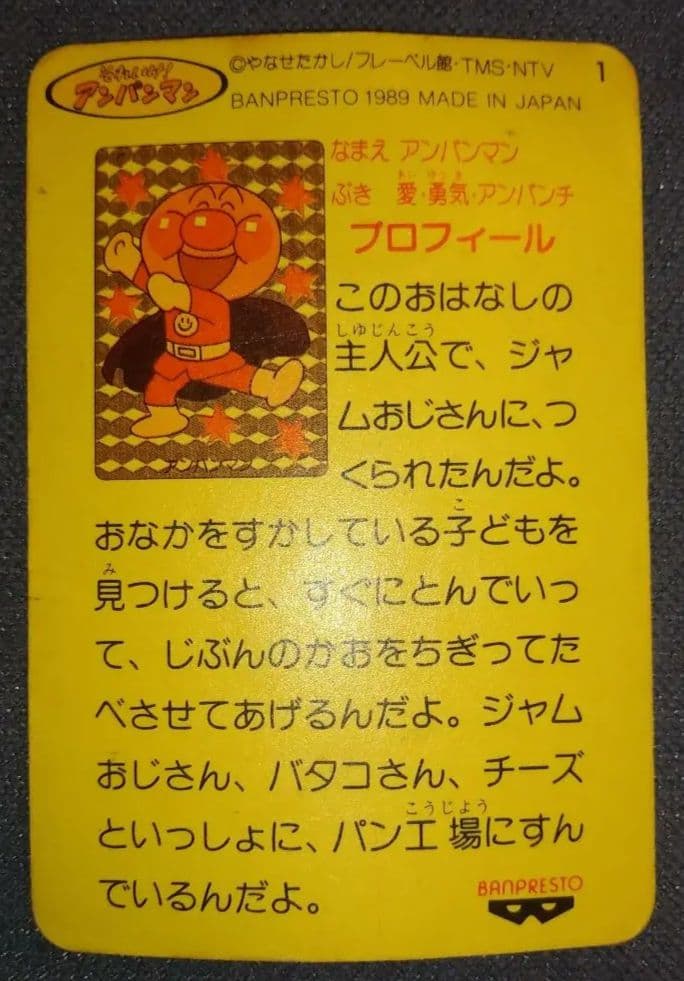 それいけ!
アンパンマン
©やなせたかし/フレーベル館・TMS・NTV
1
BANPRESTO 1989 MADE IN JAPAN
なまえ アンパンマン
あい ゆうき
ぶき 愛・勇気・アンパンチ
プロフィール
このおはなしの
しゆじんこう
主人公で、ジャ
ムおじさんに、つ
くられたんだよ。
アンパンマン
こ
おなかをすかしている子どもを
み
見つけると、すぐにとんでいっ
て、じぶんのかおをちぎってた
べさせてあげるんだよ。ジャム
おじさん、バタコさん、チーズ
こうじよう
といっしょに、パン工場にすん
でいるんだよ。
BANPRESTO